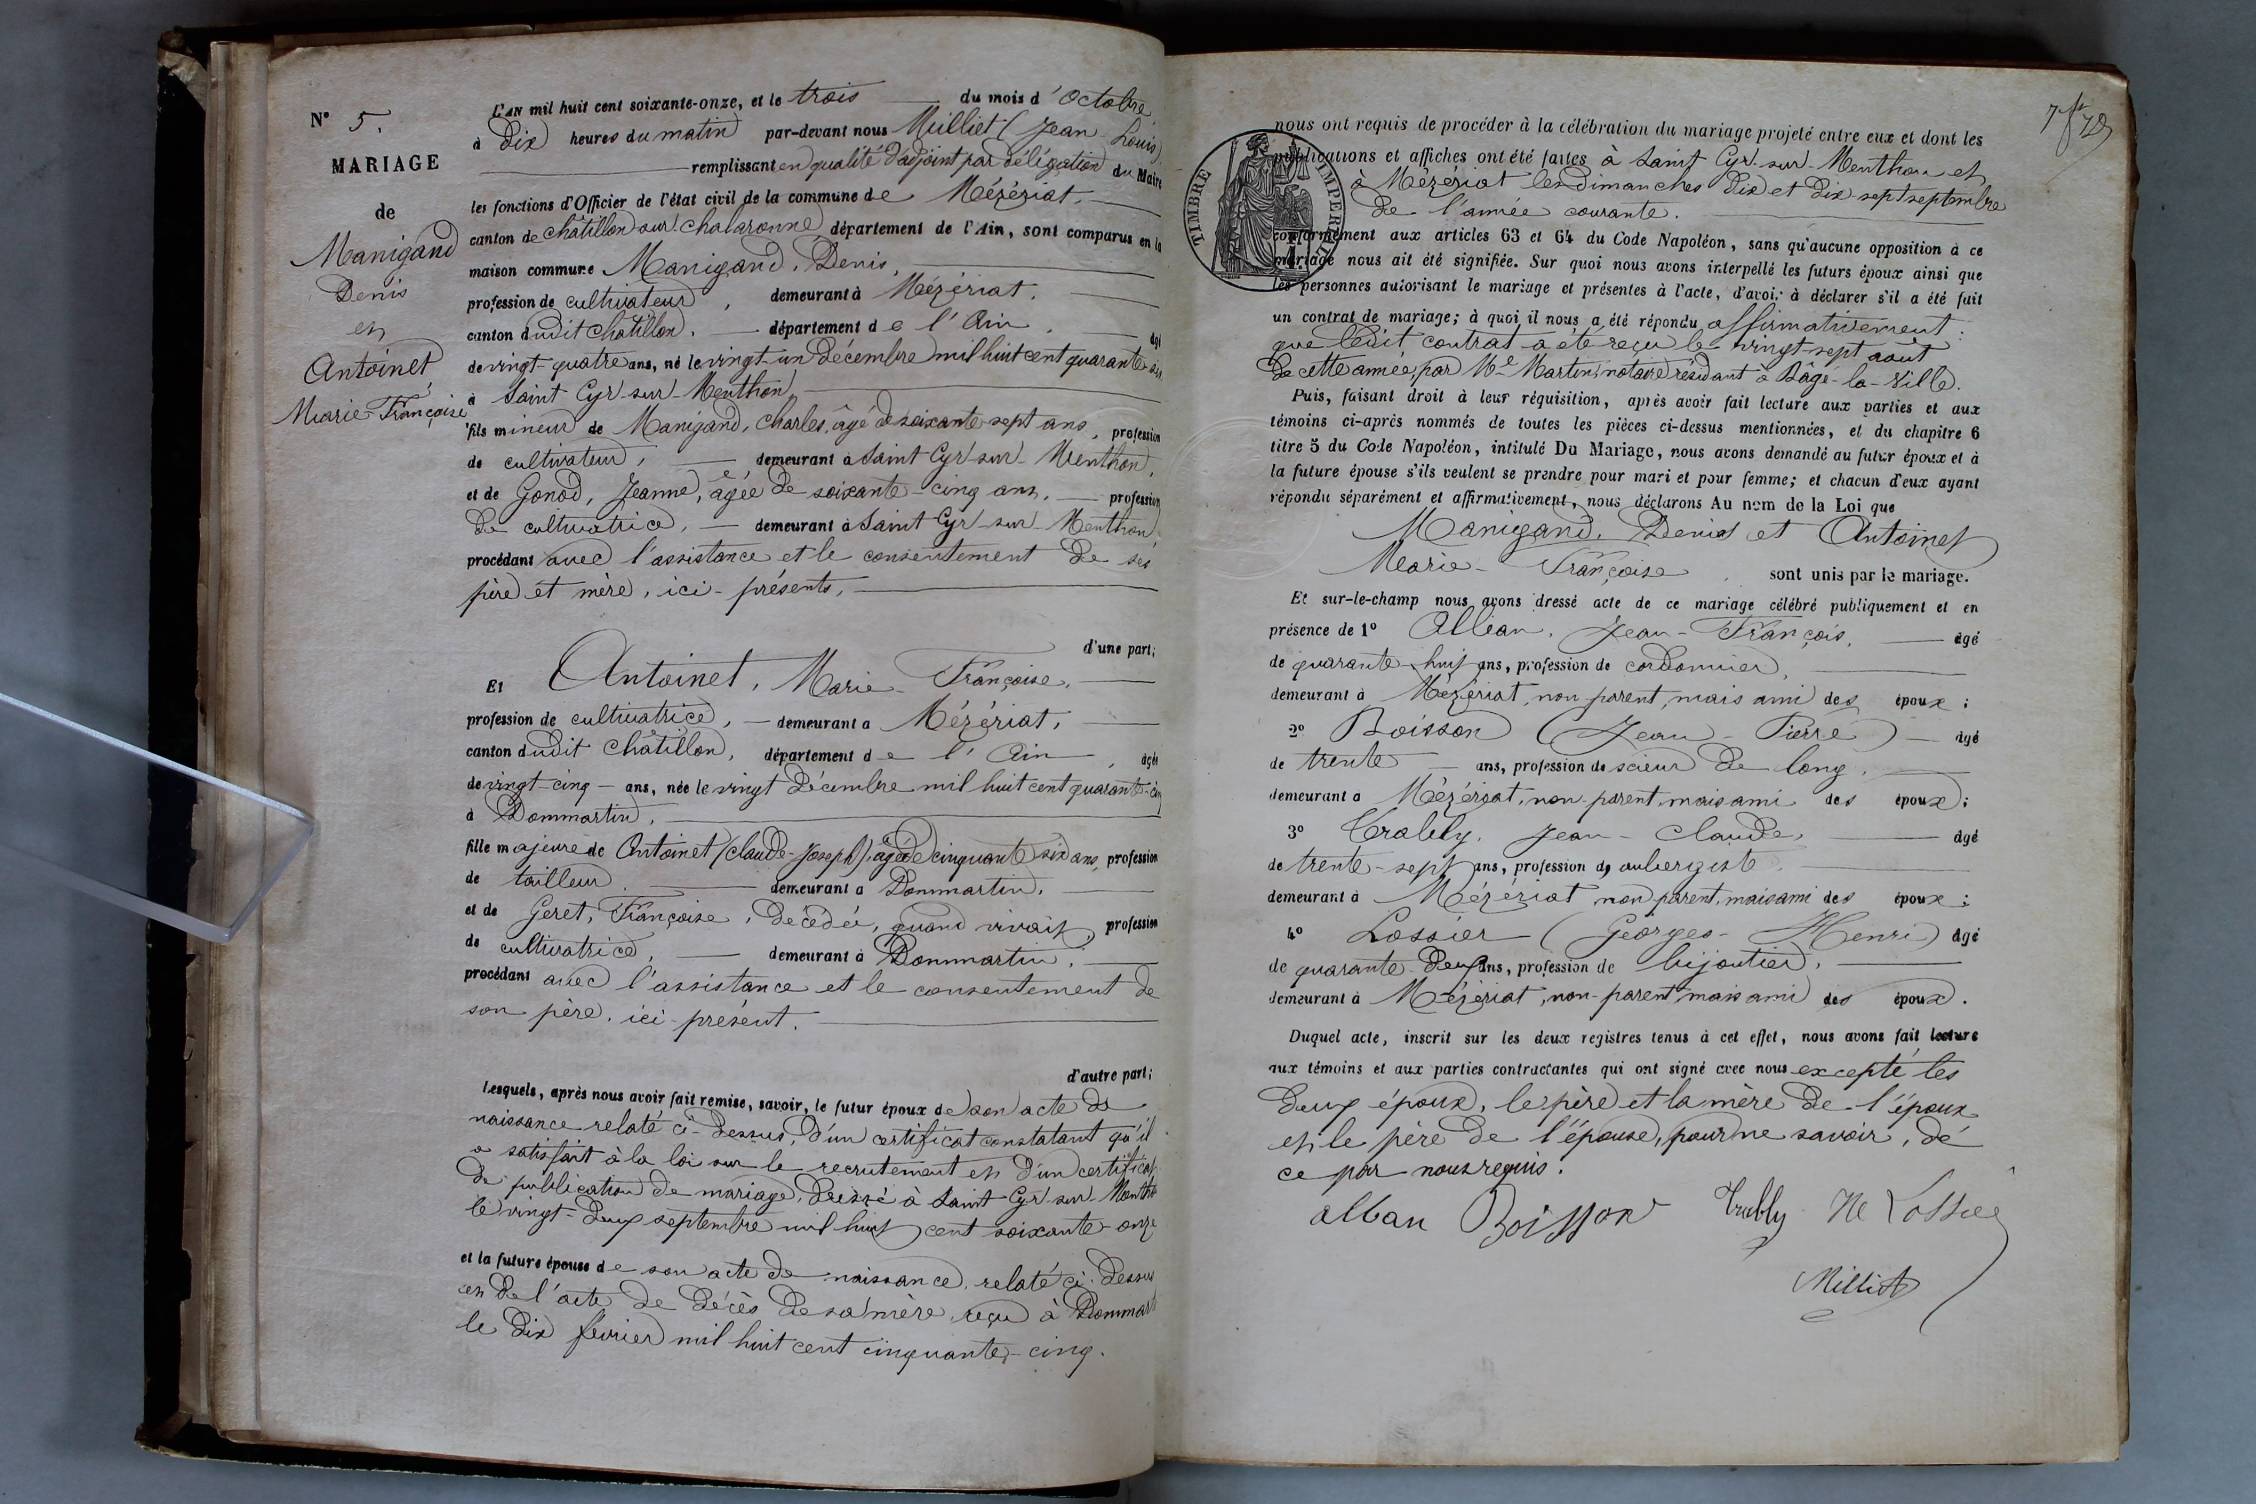 N° 5.
MARIAGE
de
Manigand
Denis
et
Antoinet
Marie-Françoise
L'AN mil huit cent soixante-onze, et le trois du mois d'Octobre
à Dix heures du matin par-devant nous Milliet (Jean Louis)
remplissant en qualité d'adjoint par délégation du Maire
les fonctions d'Officier de l'état civil de la commune de Mézériat,
canton de Châtillon sur Chalaronne département de l'Ain, sont comparus en la
maison commune Manigand, Denis,
profession de cultivateur, demeurant à Mézériat,
canton dudit Châtillon, département de l'Ain, âgé
de vingt-quatre ans, né le vingt-un Décembre mil huit cent quarante six
à Saint Cyr-sur-Menthon,
fils mineur de Manigand, Charles, âgé de soixante sept ans, profession
de cultivateur, demeurant à Saint Cyr-sur-Menthon,
et de Gonod, Jeanne, âgée de soixante-cinq ans, profession
de cultivatrice, demeurant à Saint Cyr-sur-Menthon,
procédant avec l'assistance et le consentement de ses
père et mère, ici-présents,
d'une part;
Et Antoinet, Marie-Françoise,
profession de cultivatrice, demeurant à Mézériat,
canton dudit Châtillon, département de l'Ain, âgée
de vingt-cinq ans, née le vingt Décembre mil huit cent quarante-cinq
à Dommartin,
fille majeure de Antoinet (Claude-Joseph), âgé de cinquante six ans, profession
de tailleur demeurant à Dommartin,
et de Geret, Françoise, décédée, quand vivait, profession
de cultivatrice, demeurant à Dommartin,
procédant avec l'assistance et le consentement de
son père, ici-présent,
d'autre part;
Lesquels, après nous avoir fait remise, savoir, le futur époux de son acte de
naissance relaté ci-dessus, d'un certificat constatant qu'il
a satisfait à la loi sur le recrutement et d'un certificat
de publication de mariage, dressé à Saint Cyr-sur-Menthon
le vingt-deux septembre mil huit cent soixante-onze
et la future épouse de son acte de naissance, relaté ci-dessus
et de l'acte de décès de sa mère, reçu à Dommartin
le dix février mil huit cent cinquante-cinq.
TIMBRE IMPERIAL
nous ont requis de procéder à la célébration du mariage projeté entre eux et dont les
publications et affiches ont été faites à Saint Cyr-sur-Menthon et
à Mézériat les dimanches dix et dix sept septembre
de l'année courante.
conformément aux articles 63 et 64 du Code Napoléon, sans qu'aucune opposition à ce
mariage nous ait été signifiée. Sur quoi nous avons interpellé les futurs époux ainsi que
les personnes autorisant le mariage et présentes à l'acte, d'avoir à déclarer s'il a été fait
un contrat de mariage; à quoi il nous a été répondu affirmativement:
que ledit contrat a été reçu le vingt-sept août
de cette année, par Me Martin, notaire résidant à Bâgé-la-Ville.
Puis, faisant droit à leur réquisition, après avoir fait lecture aux parties et aux
témoins ci-après nommés de toutes les pièces ci-dessus mentionnées, et du chapitre 6
titre 5 du Code Napoléon, intitulé Du Mariage, nous avons demandé au futur époux et à
la future épouse s'ils veulent se prendre pour mari et pour femme; et chacun d'eux ayant
répondu séparément et affirmativement, nous déclarons Au nom de la Loi que
Manigand, Denis et Antoinet
Marie-Françoise, sont unis par le mariage.
Et sur-le-champ nous avons dressé acte de ce mariage célébré publiquement et en
présence de 1° Alban, Jean-François, âgé
de quarante huit ans, profession de cordonnier,
demeurant à Mézériat, non parent, mais ami des époux;
2° Boisson (Jean-Pierre) âgé
de trente ans, profession de scieur de long,
demeurant à Mézériat, non-parent, mais ami des époux;
3° Trably, Jean-Claude, âgé
de trente-sept ans, profession d'aubergiste,
demeurant à Mézériat non parent, mais ami des époux;
4° Lossier (Georges-Henri) âgé
de quarante-deux ans, profession de bijoutier,
demeurant à Mézériat, non-parent mais ami des époux.
Duquel acte, inscrit sur les deux registres tenus à cet effet, nous avons fait lecture
aux témoins et aux parties contractantes qui ont signé avec nous excepté les
deux époux, le père et la mère de l'époux
et le père de l'épouse, pour ne savoir, de
ce par nous requis.
alban Boisson Trably H Lossier
Milliet